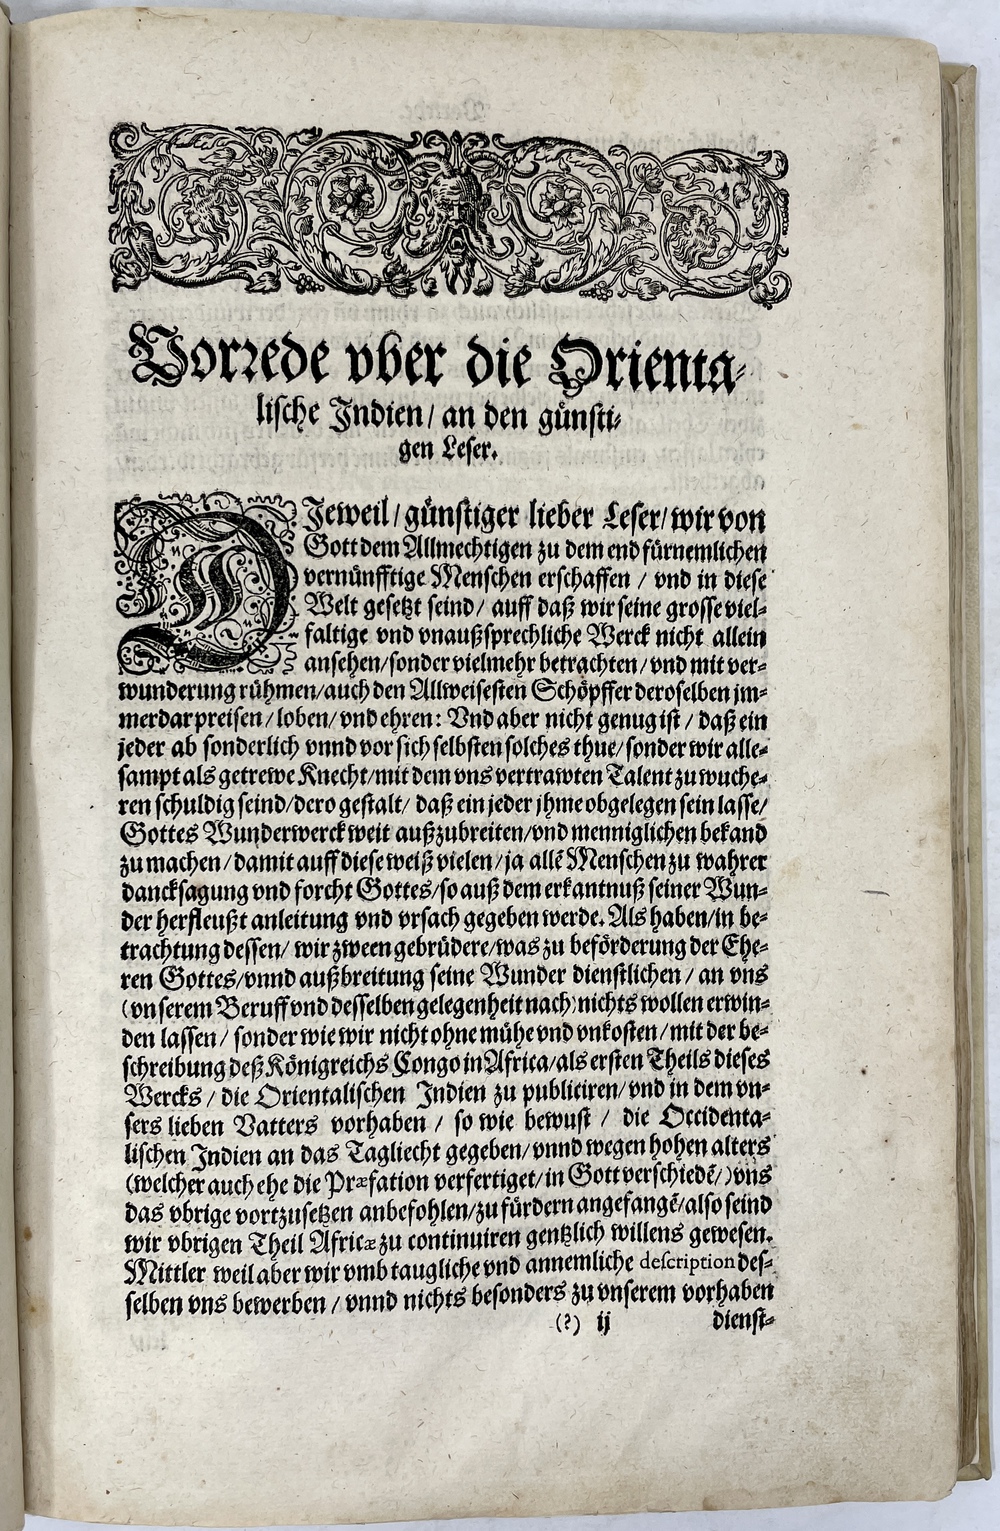 Vorrede vber die Orienta-
lische Indien/ an den günsti-
gen Leser.
DJeweil/ günstiger lieber Leser/ wir von
Gott dem Allmechtigen zu dem end fürnemlichen
vernünfftige Menschen erschaffen / vnd in diese
Welt gesetzt seind/ auff daß wir seine grosse viel-
faltige vnd vnaußsprechliche Werck nicht allein
ansehen/sonder vielmehr betrachten/ vnd mit ver-
wunderung rühmen/auch den Allweisesten Schöpffer deroselben jm-
merdar preisen/ loben/ vnd ehren: Vnd aber nicht genug ist / daß ein
jeder ab sonderlich vnnd vor sich selbsten solches thue/ sonder wir alle-
sampt als getrewe Knecht/mit dem vns vertrawten Talent zu wuche-
ren schuldig seind/dero gestalt/ daß ein jeder jhme obgelegen sein lasse/
Gottes Wunderwerck weit außzubreiten/vnd menniglichen bekand
zu machen/ damit auff diese weiß vielen/ ja allẽ Menschen zu wahrer
dancksagung vnd forcht Gottes/so auß dem erkantnuß seiner Wun-
der herfleußt anleitung vnd vrsach gegeben werde. Als haben/in be-
trachtung dessen/ wir zween gebrüdere/was zu beförderung der Ehe-
ren Gottes/vnnd außbreitung seine Wunder dienstlichen / an vns
(vnserem Beruff vnd desselben gelegenheit nach) nichts wollen erwin-
den lassen/ sonder wie wir nicht ohne mühe vnd vnkosten/ mit der be-
schreibung deß Königreichs Congo in Africa/als ersten Theils dieses
Wercks / die Orientalischen Indien zu publiciren/ vnd in dem vn-
sers lieben Vatters vorhaben / so wie bewust / die Occidenta-
lischen Indien an das Tagliecht gegeben/ vnnd wegen hohen alters
(welcher auch ehe die Præfation verfertiget/ in Gott verschiedẽ/) vns
das vbrige vortzusetzen anbefohlen/zu fürdern angefangẽ/also seind
wir vbrigen Theil Africæ zu continuiren gentzlich willens gewesen.
Mittler weil aber wir vmb taugliche vnd annemliche description des-
selben vns bewerben / vnnd nichts besonders zu vnserem vorhaben
(?) ij dienst-